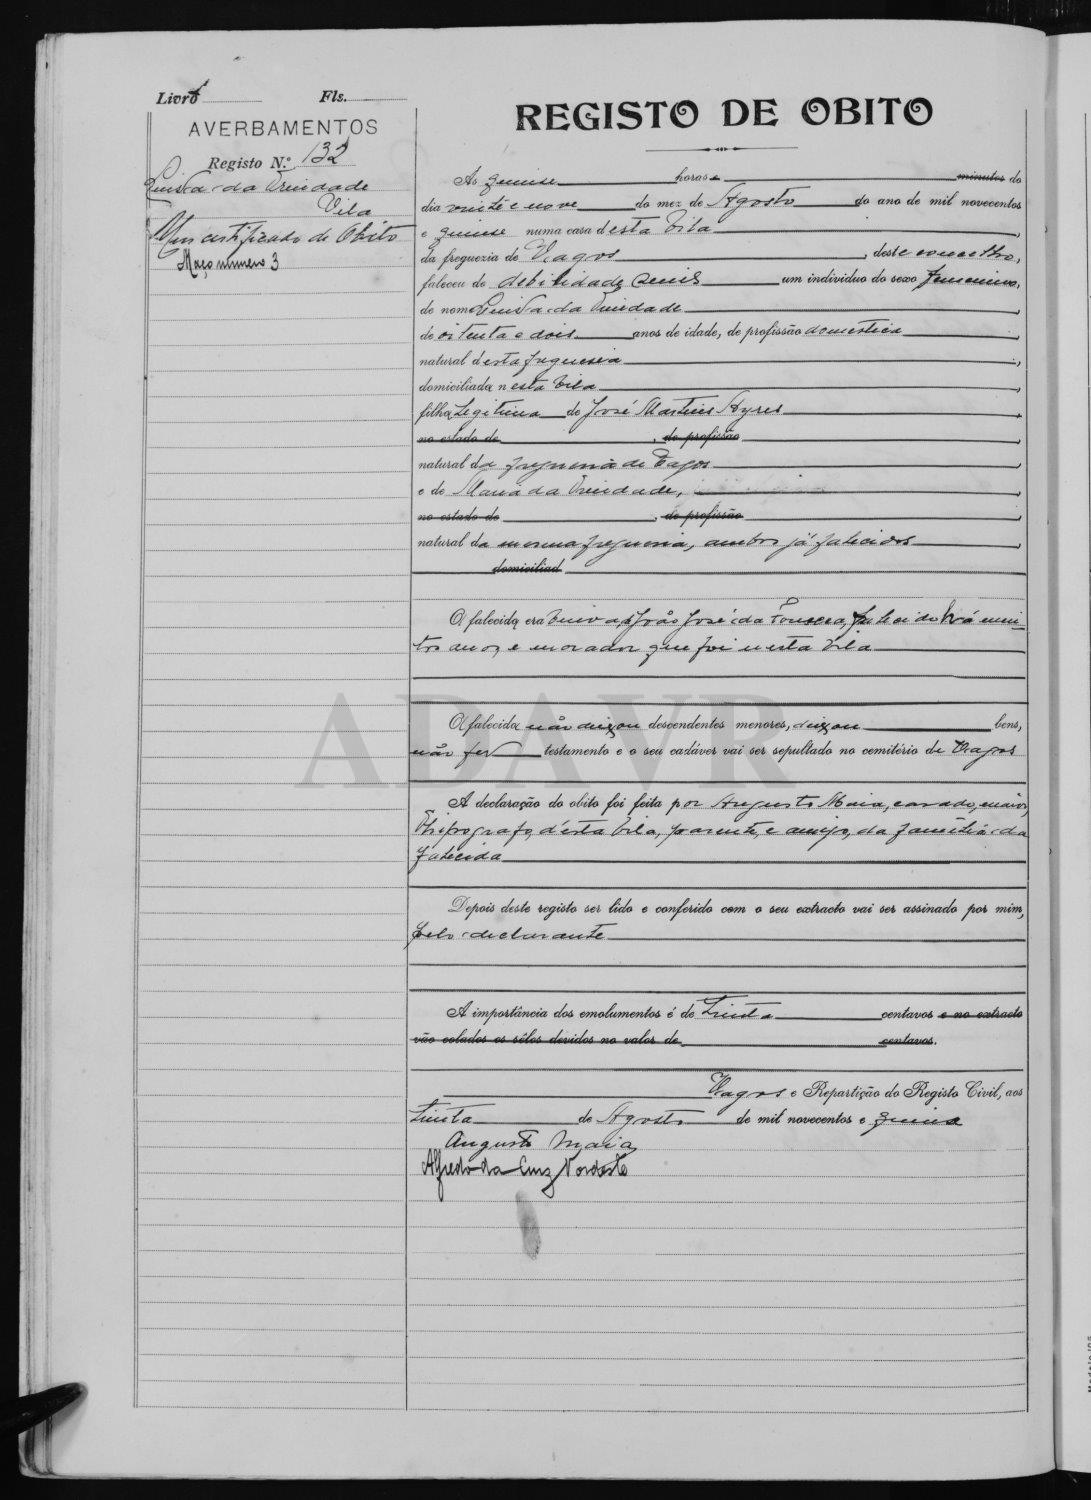 Livro Fls.
AVERBAMENTOS
Registo N.º 132
Luisa da Trindade
Vila
Um certificado de Obito
Maço número 3
REGISTO DE OBITO
Ás quinse horas e minutos do
dia vinte e nove do mez de Agosto do ano de mil novecentos
e quinse numa casa d'esta Vila,
da freguezia de Vagos, deste concelho,
faleceu de debilidade senil um individuo do sexo femenino,
de nome Luisa da Trindade
de oitenta e dois anos de idade, de profissão domestica,
natural d'esta freguesia,
domiciliada n'esta Vila,
filha legitima de José Martins Ayres,
no estado de, de profissão,
natural da freguesia de Vagos
e de Maria da Trindade,
no estado de, de profissão,
natural da mesma freguesia, ambos já falecidos,
domiciliad
A falecida era viuva de João José da Fonseca, falecido há mui-
tos anos, e morador que foi nesta Vila
A falecida não deixou descendentes menores, deixou bens,
não fez testamento e o seu cadáver vai ser sepultado no cemitério de Vagos
A declaração do obito foi feita por Augusto Maia, casado, maior,
thipografo, d'esta Vila, parente, e amigo, da família da
falecida
Depois deste registo ser lido e conferido com o seu extracto vai ser assinado por mim,
pelo declarante
A importância dos emolumentos é de Trinta centavos e no extracto
vão colados os sêlos devidos no valor de centavos.
Vagos e Repartição do Registo Civil, aos
trinta de Agosto de mil novecentos e quinse
Augusto Maia
Alfredo da Cruz Nordeste
ADAVR